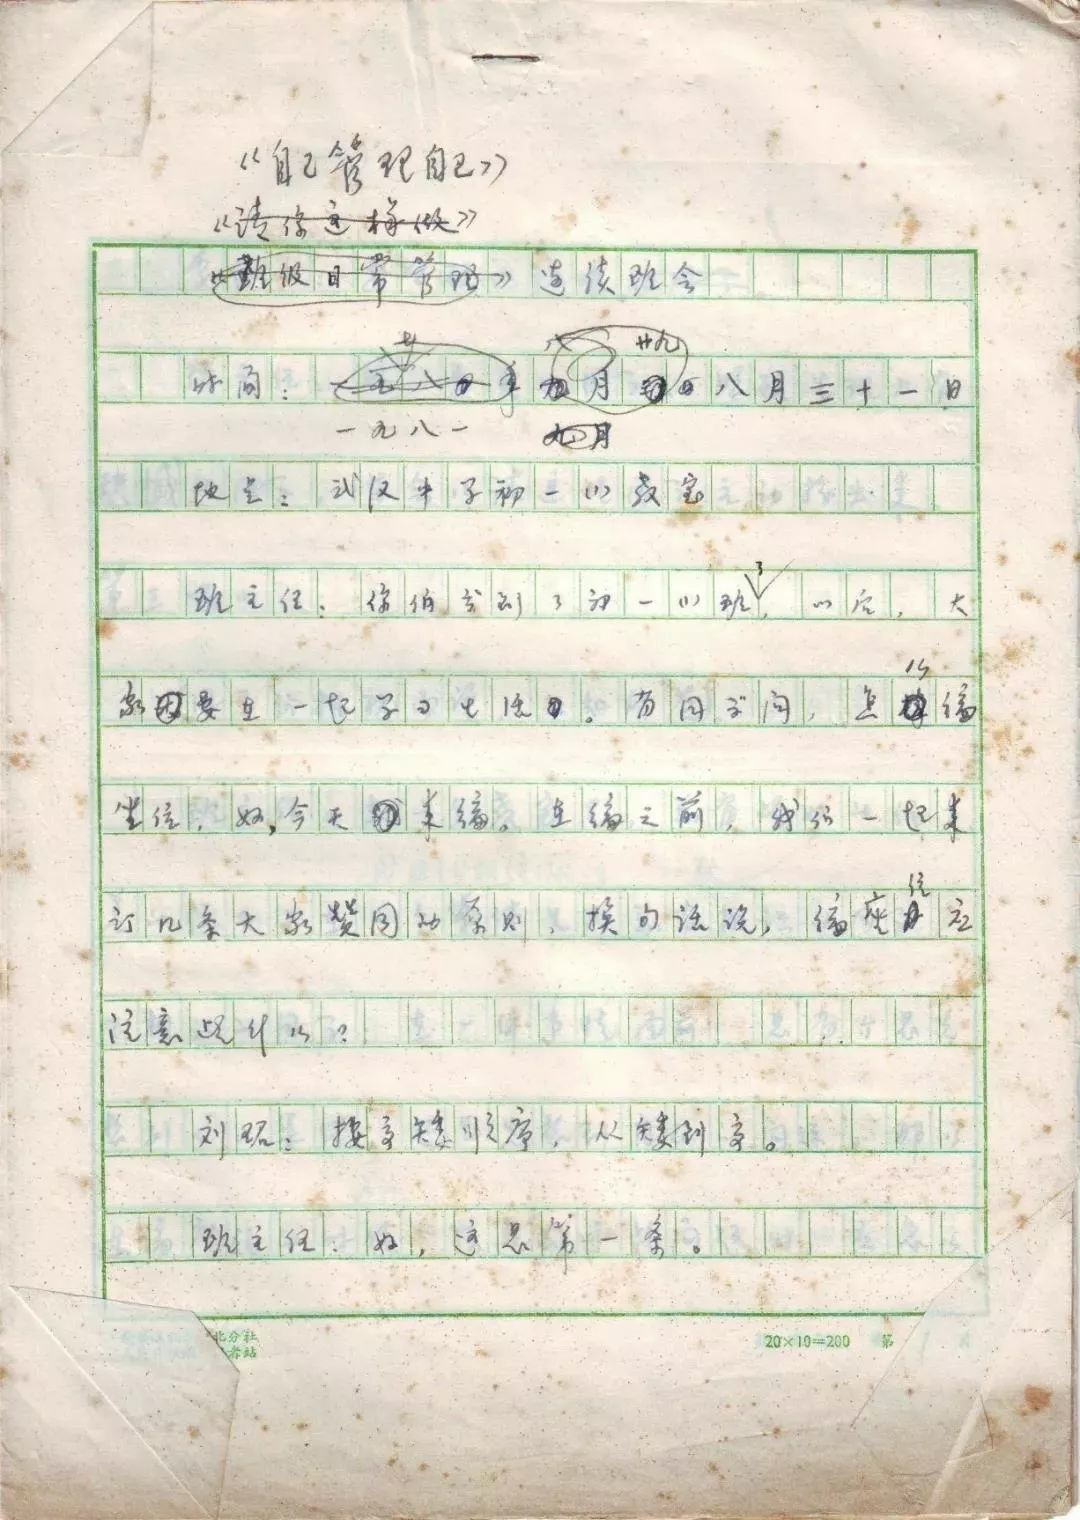 《自己管理自己》
《请你这样做》
《班级日常管理》连续班会
廿 八 廿九
时间：一九八〇年 月 日八月三十一日
一九八一 九月
地点：武汉中学初一(1)教室
了
班主任：你们来到了初一(1)班，以后，大
么
家要在一起学习生活。有同学问，怎编
坐位，好，今天来编。在编之前，我们一起来
位
订几条大家赞同的原则，换句话说，编座应
注意些什么？
刘珞：按高矮顺序，从矮到高。
班主任：好，这是第一条。
北分社
者站
20×10=200 第